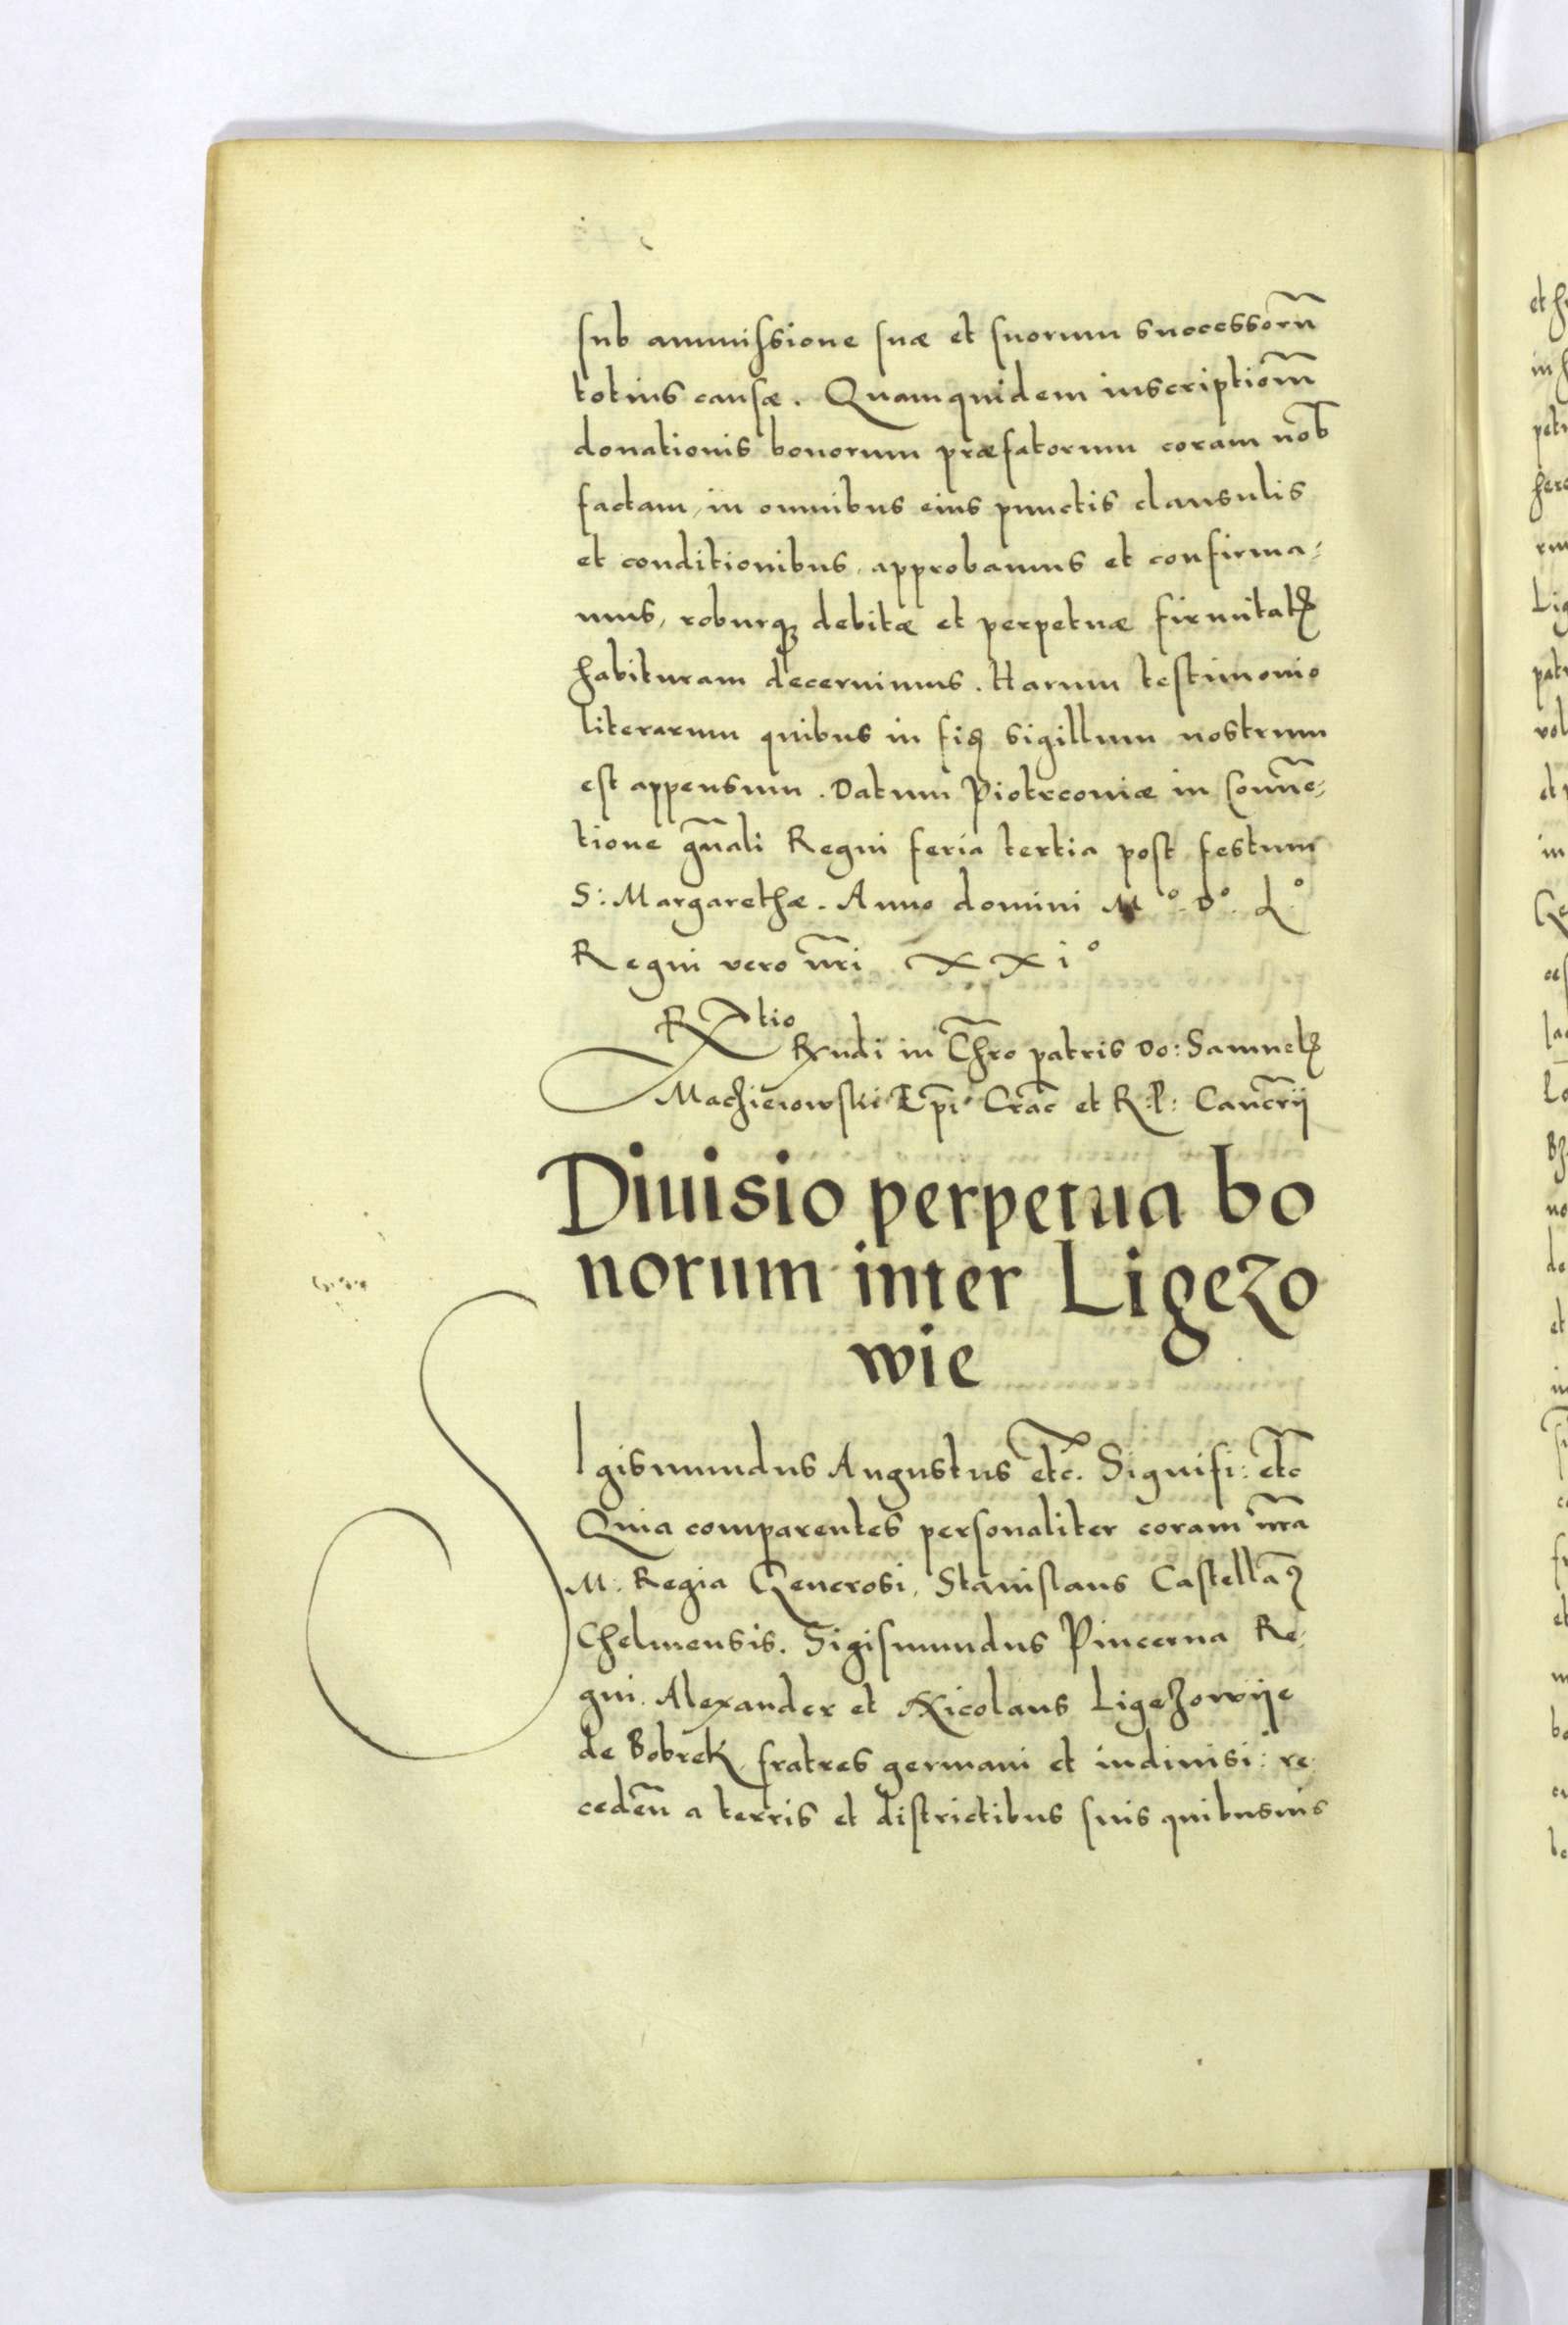 sub ammissione suæ et suorum successorũ
totius causæ. Quamquidem inscriptiõm
donationis bonorum præfatorum coram nob̃
factam, in omnibus eius punctis clausulis
et conditionibus, approbamus et confirma-
mus, roburq₃ debitæ et perpetuæ firmitatꝭ
habituram decernimus. Harum testimonio
literarum quibus in fiꝫ sigillum nostrum
est appensum. Datum Piotrcoviæ in Conṽe-
tione gñali Regni feria tertia post festum
S: Margarethæ. Anno domini M°. D°. L°
Regni vero ñri XXi°
Rtio
Rxndi in Chr̃o patris Do: Samuelꝭ
Maczieiowski Ep̃i Crac̃ et R: P: Canc̃rij
Diuisio perpetua bo
norum inter Ligezo
wie
SIgismundus Augustus etc̃. Signifi: etc̃
Quia comparentes personaliter coram ñra
M. Regia Generosi, Stanislaus Castellãꝰ
Chelmensis. Sigismundus Pincerna Re-
gni. Alexander et Nicolaus Ligezowije
de Bobrek, fratres germani et indiuisi: re
cedeñ a terris et districtibus suis quibusuis